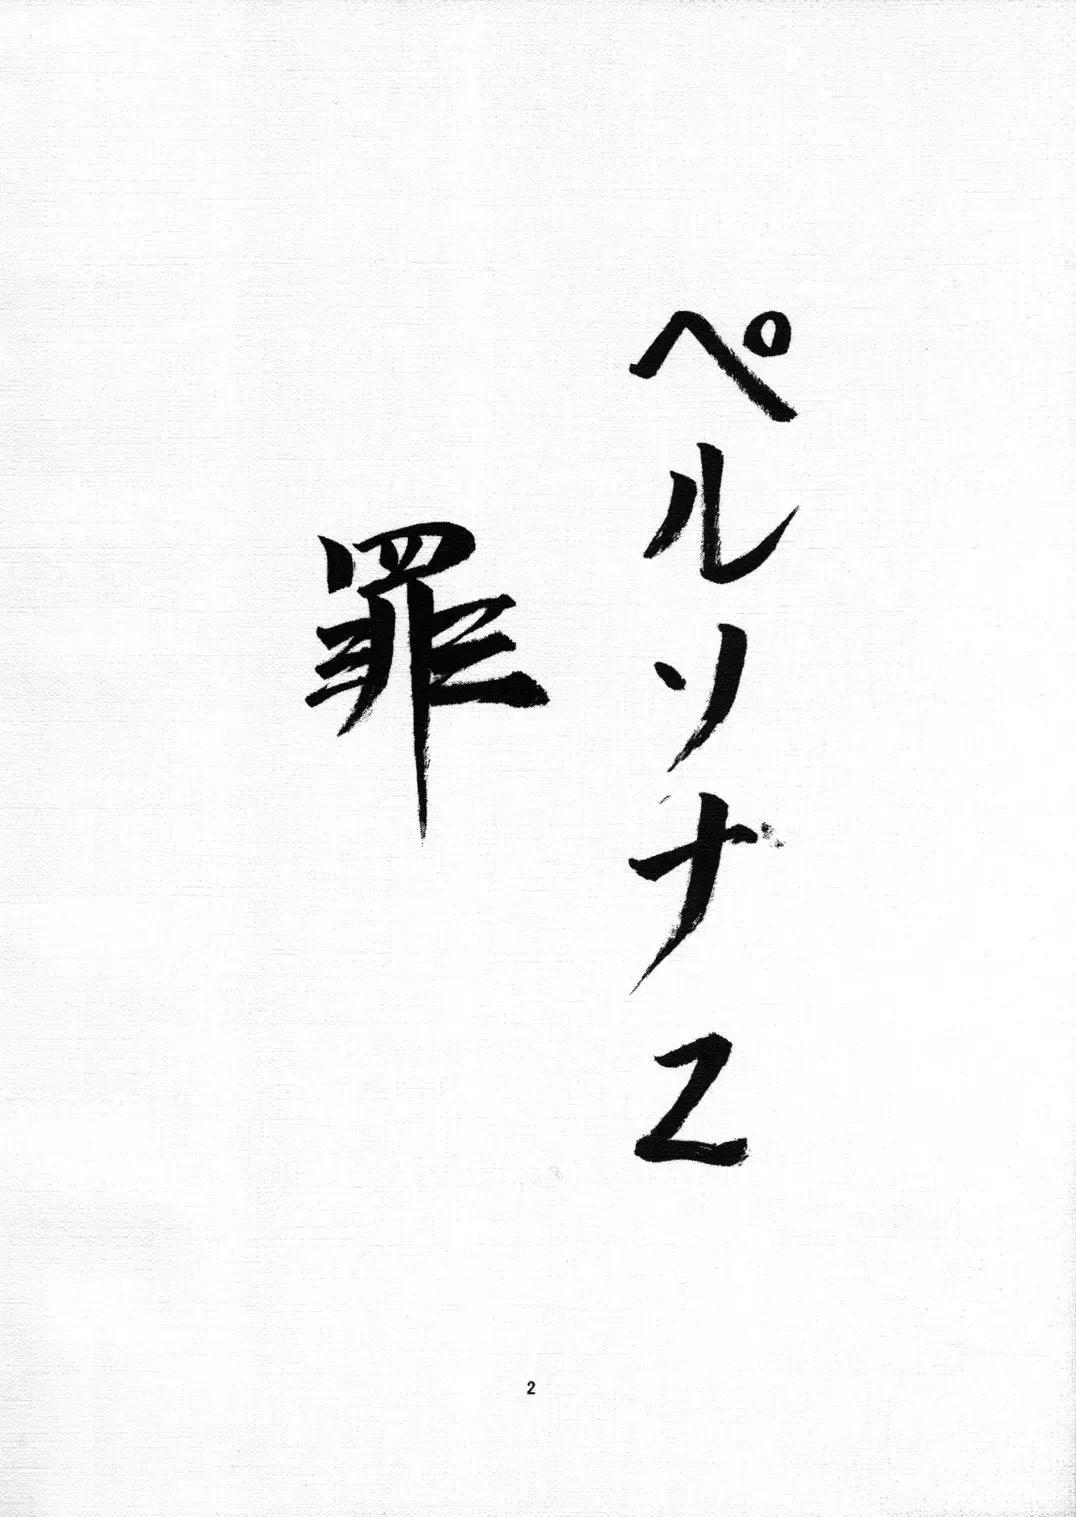 ペルソナ2
罪
2